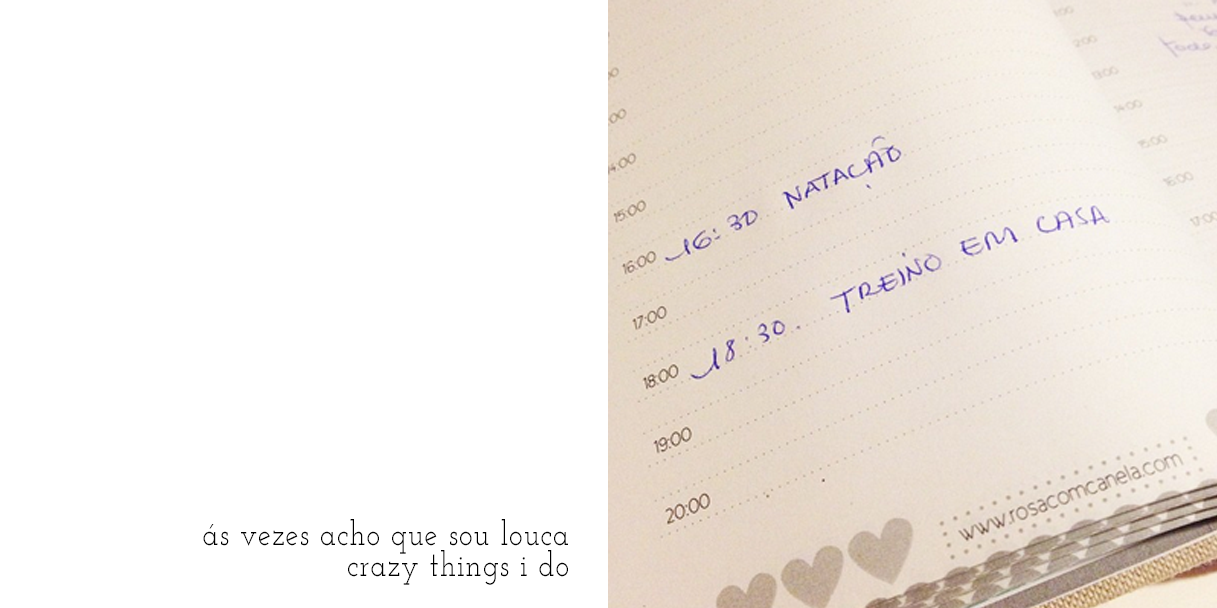 ás vezes acho que sou louca
crazy things i do
14:00
15:00
16:00 16:30 NATAÇÃO
17:00
18:00 18:30. TREINO EM CASA
19:00
20:00
www.rosacomcanela.com
12:00
13:00
14:00
15:00
16:00
17:00